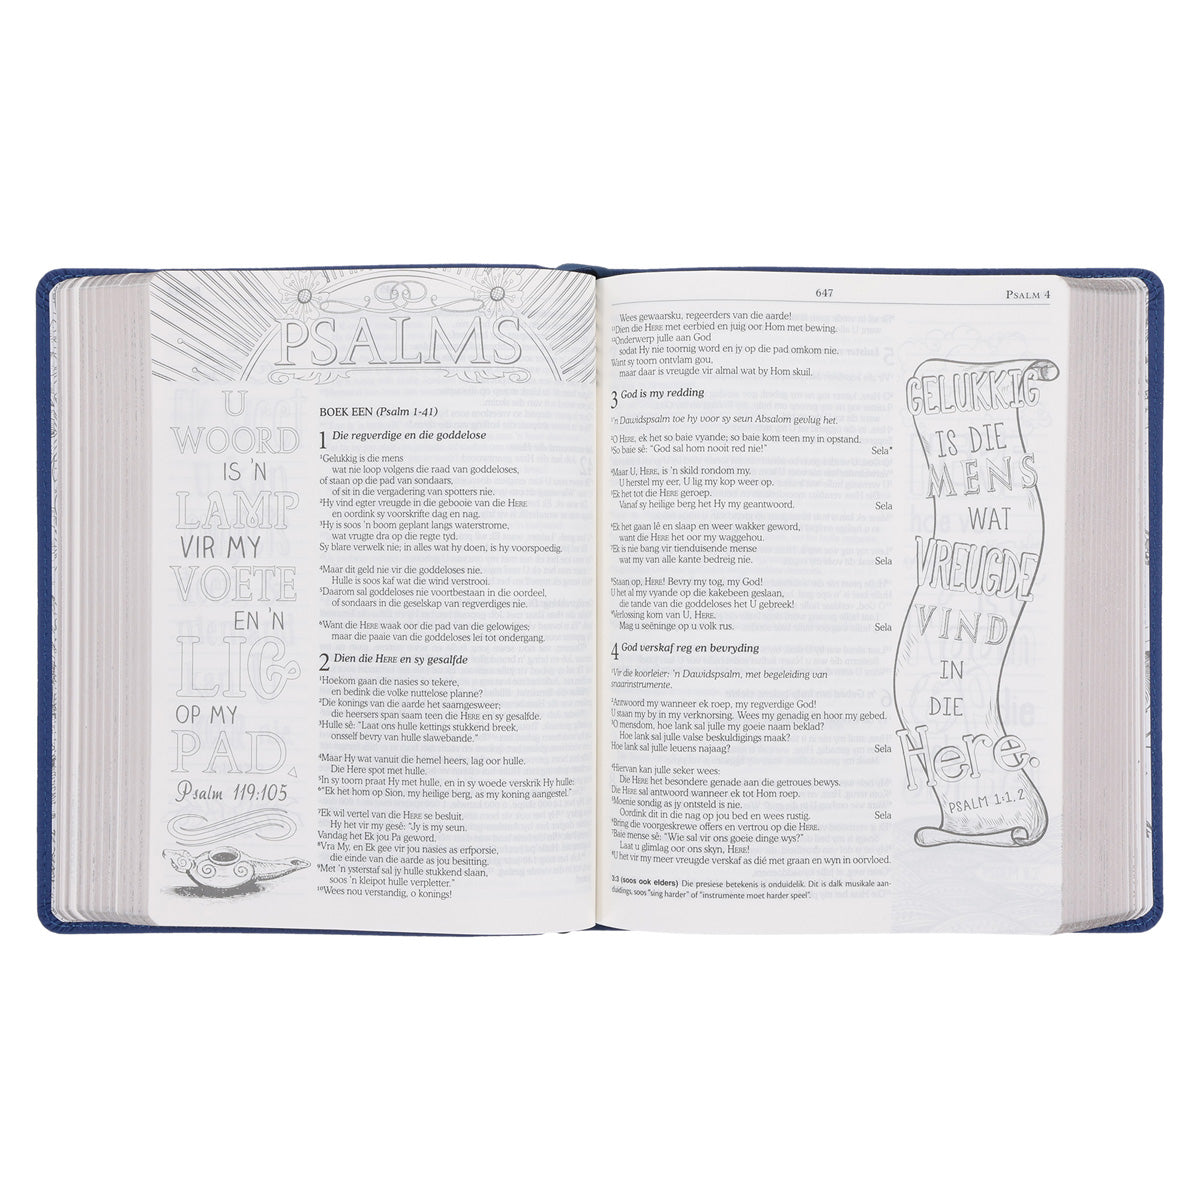 PSALMS
U
WOORD
IS 'N
LAMP
VIR MY
VOETE
EN 'N
LIG
OP MY
PAD.
Psalm 119:105
BOEK EEN (Psalm 1-41)
1 Die regverdige en die goddelose
1Gelukkig is die mens
wat nie loop volgens die raad van goddeloses,
of staan op die pad van sondaars,
of sit in die vergadering van spotters nie.
2Hy vind egter vreugde in die gebooie van die HERE
en oordink sy voorskrifte dag en nag.
3Hy is soos 'n boom geplant langs waterstrome,
wat vrugte dra op die regte tyd.
Sy blare verwelk nie; in alles wat hy doen, is hy voorspoedig.
4Maar dit geld nie vir die goddeloses nie.
Hulle is soos kaf wat die wind verstrooi.
5Daarom sal goddeloses nie voortbestaan in die oordeel,
of sondaars in die geselskap van regverdiges nie.
6Want die HERE waak oor die pad van die gelowiges;
maar die paaie van die goddeloses lei tot ondergang.
2 Dien die HERE en sy gesalfde
1Hoekom gaan die nasies so tekere,
en bedink die volke nuttelose planne?
2Die konings van die aarde het saamgesweer;
die heersers span saam teen die HERE en sy gesalfde.
3Hulle sê: "Laat ons hulle kettings stukkend breek,
onsself bevry van hulle slawebande."
4Maar Hy wat vanuit die hemel heers, lag oor hulle.
Die Here spot met hulle.
5In sy toorn praat Hy met hulle, en in sy woede verskrik Hy hulle:
6"Ek het hom op Sion, my heilige berg, as my koning aangestel."
7Ek wil vertel van die HERE se besluit.
Hy het vir my gesê: "Jy is my seun.
Vandag het Ek jou Pa geword.
8Vra My, en Ek gee vir jou nasies as erfporsie,
die einde van die aarde as jou besitting.
9Met 'n ysterstaf sal jy hulle stukkend slaan,
soos 'n kleipot hulle verpletter."
10Wees nou verstandig, o konings!
647
PSALM 4
Wees gewaarsku, regeerders van die aarde!
11Dien die HERE met eerbied en juig oor Hom met bewing.
12Onderwerp julle aan God
sodat Hy nie toornig word en jy op die pad omkom nie.
Want sy toorn ontvlam gou,
maar daar is vreugde vir almal wat by Hom skuil.
3 God is my redding
'n Dawidspsalm toe hy voor sy seun Absalom gevlug het.
1O HERE, ek het so baie vyande; so baie kom teen my in opstand.
2So baie sê: "God sal hom nooit red nie!" Sela*
3Maar U, HERE, is 'n skild rondom my.
U herstel my eer, U lig my kop weer op.
4Ek het tot die HERE geroep.
Vanaf sy heilige berg het Hy my geantwoord. Sela
5Ek het gaan lê en slaap en weer wakker geword,
want die HERE het oor my waggehou.
6Ek is nie bang vir tienduisende mense
wat my van alle kante bedreig nie. Sela
7Staan op, HERE! Bevry my tog, my God!
U het al my vyande op die kakebeen geslaan,
die tande van die goddeloses het U gebreek!
8Verlossing kom van U, HERE.
Mag u seëninge op u volk rus. Sela
4 God verskaf reg en bevryding
1Vir die koorleier: 'n Dawidspsalm, met begeleiding van
snaarinstrumente.
2Antwoord my wanneer ek roep, my regverdige God!
U staan my by in my verknorsing. Wees my genadig en hoor my gebed.
3O mensdom, hoe lank sal julle my goeie naam beklad?
Hoe lank sal julle valse beskuldigings maak?
Hoe lank sal julle leuens najaag? Sela
4Hiervan kan julle seker wees:
Die HERE het besondere genade aan die getroues bewys.
Die HERE sal antwoord wanneer ek tot Hom roep.
5Moenie sondig as jy ontsteld is nie.
Oordink dit in die nag op jou bed en wees rustig. Sela
6Bring die voorgeskrewe offers en vertrou op die HERE.
7Baie mense sê: "Wie sal vir ons goeie dinge wys?"
Laat u glimlag oor ons skyn, HERE!
8U het vir my meer vreugde verskaf as dié met graan en wyn in oorvloed.
3:3 (soos ook elders) Die presiese betekenis is onduidelik. Dit is dalk musikale aan-
duidings, soos "sing harder" of "instrumente moet harder speel".
GELUKKIG
IS DIE
MENS
WAT
VREUGDE
VIND
IN
DIE
Here.
PSALM 1:1.2